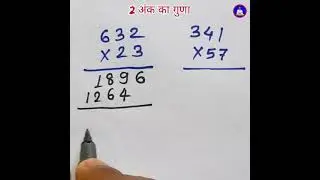 2 अंक का गुणा
632
×23
1896
1264
341
×57